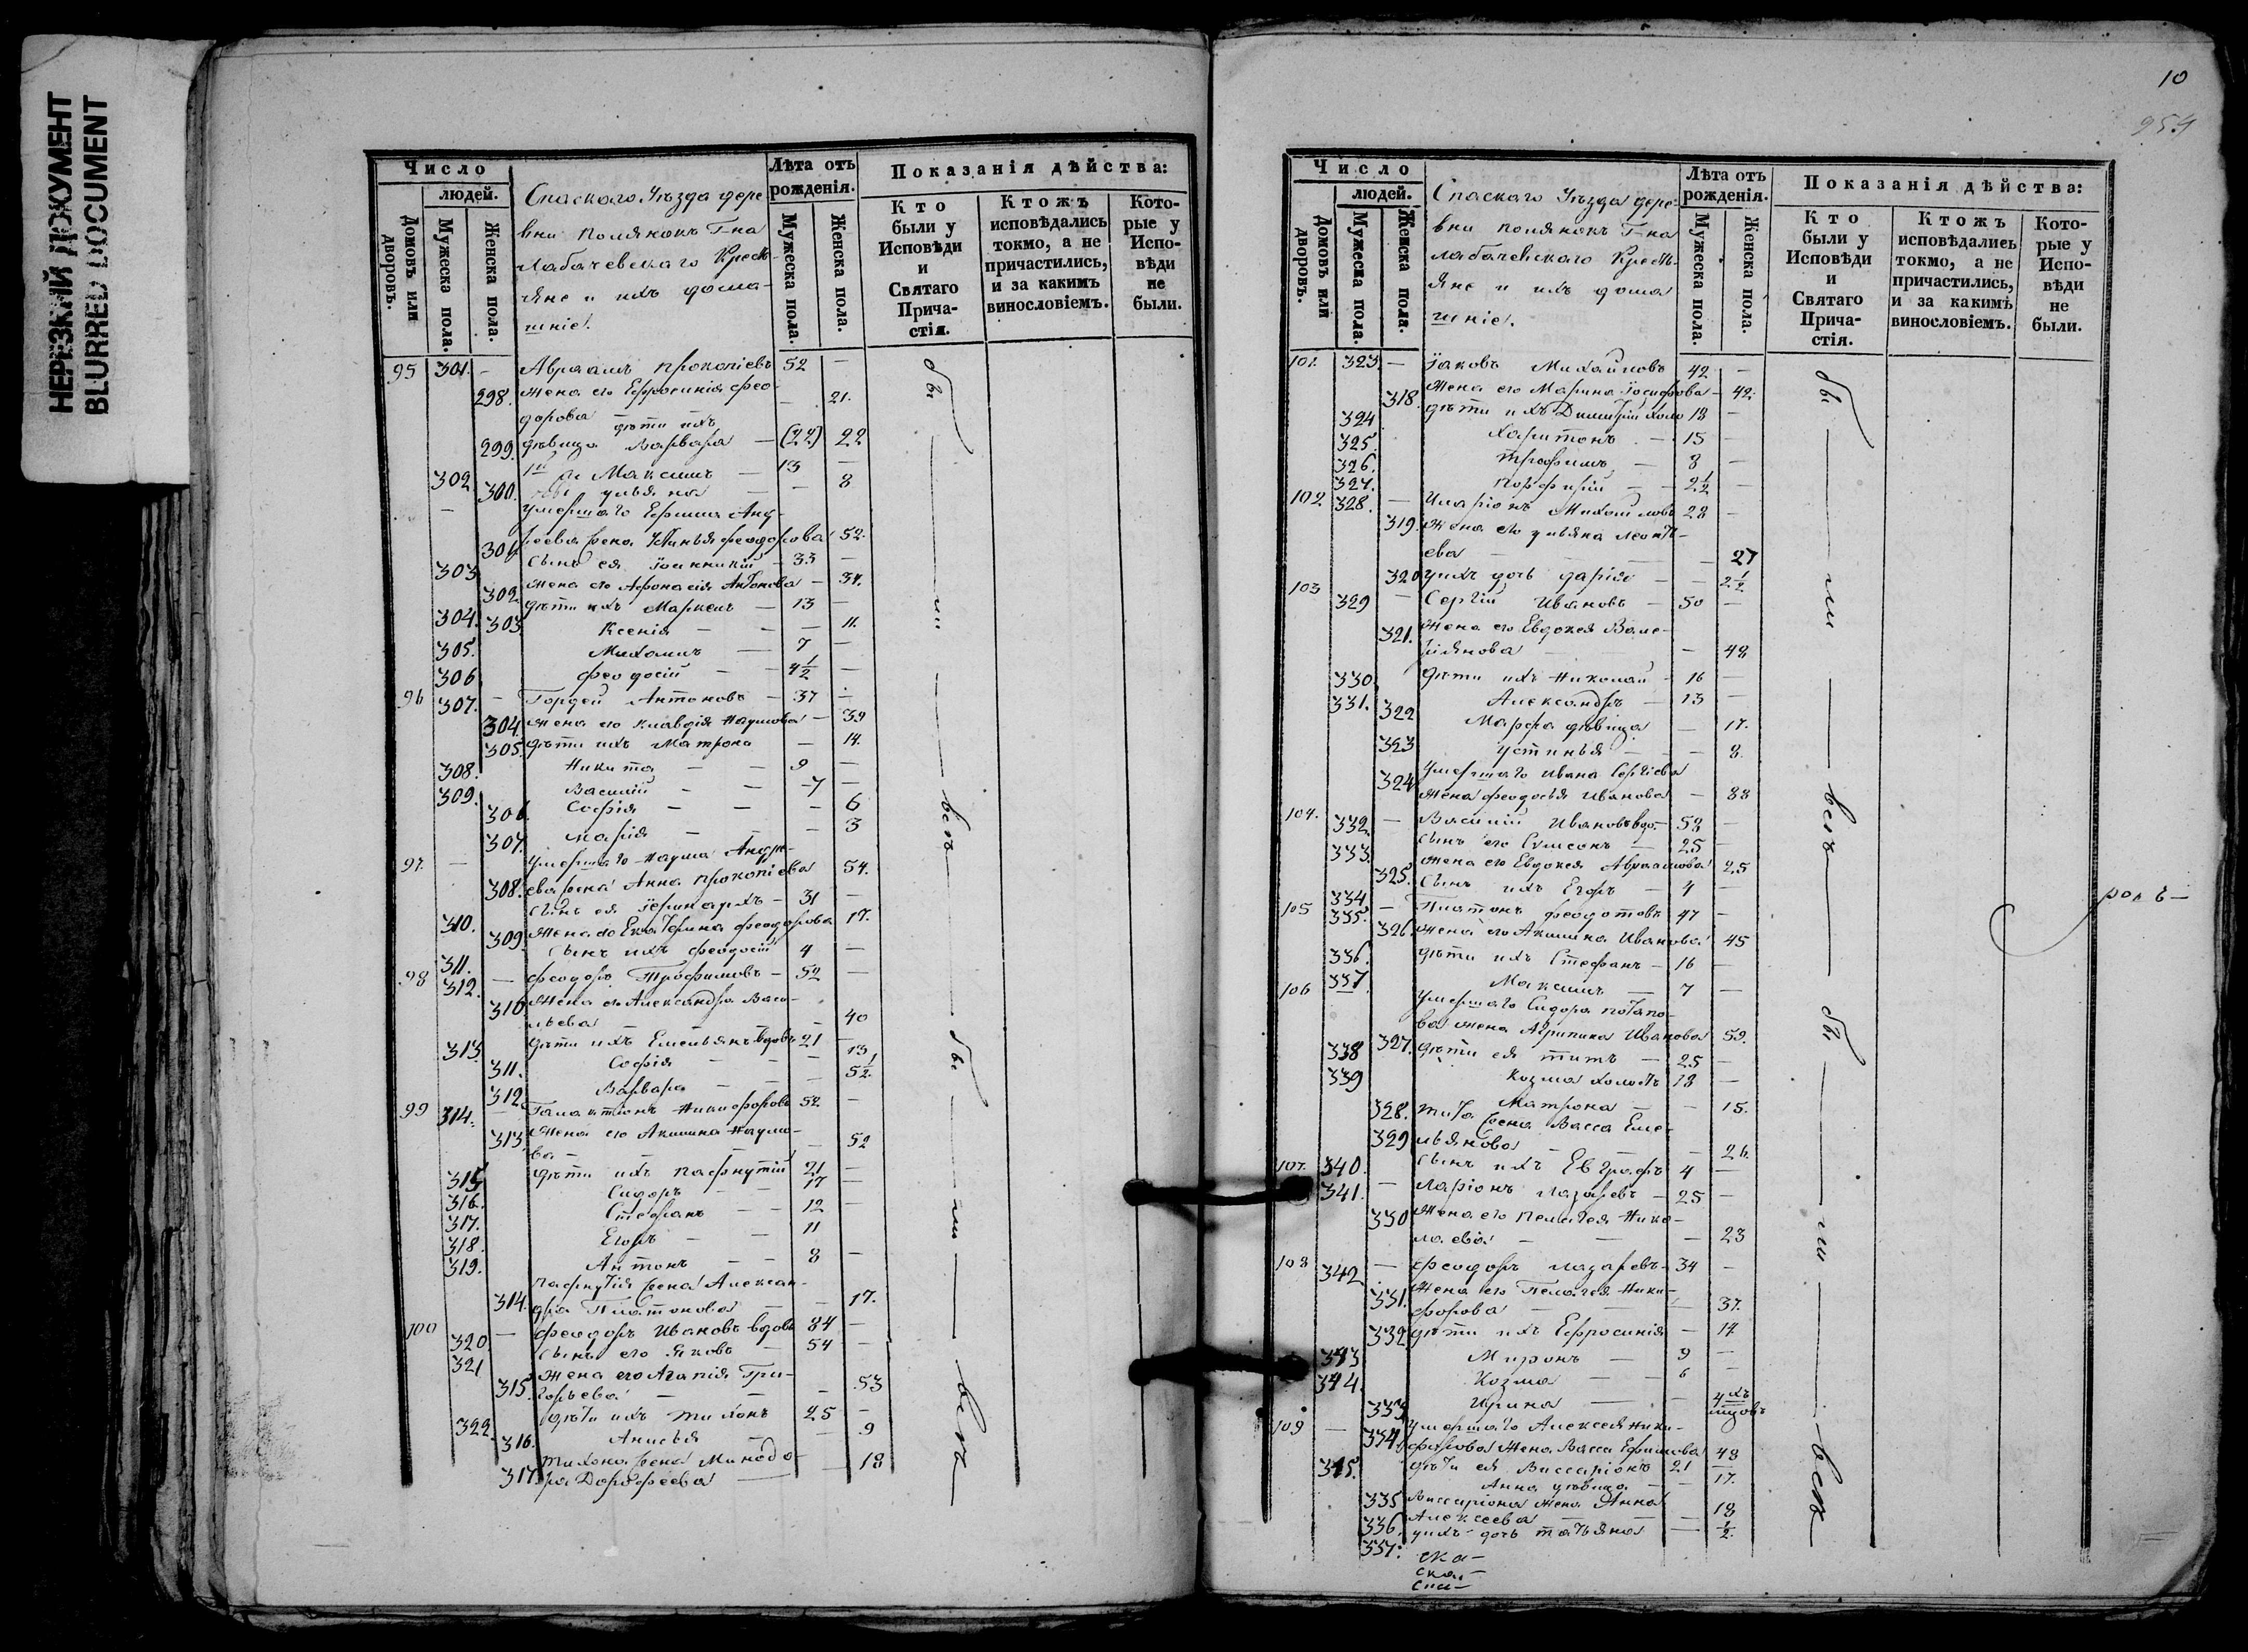 НЕРЕЗКИЙ ДОКУМЕНТ
BLURRED DOCUMENT
Число
людей.
Домовъ или дворовъ.
Мужеска пола.
Женска пола.
Спаскаго Уѣзда дере-
вни Полянокъ Г-на
Лабачевскаго Кресть-
яне и ихъ дома-
шніе.
Лѣта отъ рожденія.
Мужеска пола.
Женска пола.
Показанія дѣйства:
Кто были у Исповѣди и Святаго Прича-стія.
Ктожъ исповѣдались токмо, а не причастились, и за какимъ винословіемъ.
Кото-рые у Испо-вѣди не были.
95 301. – Авраамъ Прокопіевъ 52 –
298. жена его Ефросинія Фео- – 21.
дорова дѣти ихъ
299. дѣвица Варвара – (22) 22
302 Максимъ – 13 –
300. ульяна – – 8
– умершаго Ефима Анд-
301. реева жена Устинья Феодорова 52.
303 сынъ ея Іоанникій – 33 –
302 жена его Афонасія Антонова – 31.
304. дѣти ихъ Маркелъ – 13 –
303. Ксенія – – – 11.
305. Михаилъ – 7 –
306 Феодосій – 4 1/2 –
96 307. – Гордей Антоновъ – 37 –
304. жена его Клавдія Наумова – 39
305. дѣти ихъ Матрона – 14.
308. Никита – – 9 –
309. Василій – – 7 –
306. Софія – – – 6
307. Марія – – – 3
97. – умершаго Наума Андре-
308. ева жена Анна Прокопіева 54.
310. сынъ ея – 31 –
309 жена его Екатерина Феодорова 17.
311. сынъ ихъ Феодосій 4 –
98 312. – Феодоръ Трофимовъ – 52 –
310 жена его Александра Васи-
льева – – – 40
313. дѣти ихъ Емельянъ вдовъ 21 –
311. Софія – – – 13
312. Варвара – – – 5 1/2.
99 314. – Галактіонъ Никифоровъ 52 –
313. жена его Акилина Наумо-
ва – – – 52
315. дѣти ихъ Пафнутій 21 –
316. Сидоръ – – 17 –
317. Стефанъ – – 12 –
318. Егоръ – – 11
319. Антонъ – – 8 –
Пафнутія жена Алексан-
314. дра Платонова – – 17.
100 320. – Феодоръ Ивановъ вдовъ 84 –
321 сынъ его Яковъ – 54 –
жена его Агапія Гри-
315. горьева – – – 53
322. дѣти ихъ Тихонъ 25 –
316. Анисья – – 9
Тихона жена Минодо-
317. ра Дорофеева – 18
бы – ли – всѣ – бы – ли – всѣ
10
954
Число
людей.
Домовъ или дворовъ.
Мужеска пола.
Женска пола.
Спаскаго Уѣзда дере-
вни Полянокъ Г-на
Лабачевскаго Кресть-
яне и ихъ дома
шніе.
Лѣта отъ рожденія.
Мужеска пола.
Женска пола.
Показанія дѣйства:
Кто были у Исповѣди и Святаго Прича-стія.
Ктожъ исповѣдались токмо, а не причастились, и за какимъ винословіемъ.
Кото-рые у Испо-вѣди не были.
101. 323. – Іаковъ Михайловъ 42 –
318. жена его Марина Іосифова – 42.
324 дѣти ихъ Димитрій холо 18 –
325. Харитонъ – 15 –
326. Трофимъ – 8 –
327. Порфирій – – 2 1/2 –
102 328. – Иларіонъ Михайловъ 28 –
319. жена его ульяна Леонть-
ева – – – 27
320 у ихъ дочь Дарія – – 2 1/2
103 329 – Сергій Ивановъ – 50 –
321. жена его Евдокея Вале-
ріянова – 48
330. дѣти ихъ Николай – 16 –
331. Александръ – 13 –
322 Марфа дѣвица – 17.
323 устинья – – – 8.
умершаго Ивана Сергіева
324 жена Феодосья Иванова – 38
104. 332. – Василій Ивановъ вдо. – 58 –
333. сынъ его Сумеонъ – 25 –
325. жена его Евдокея Авраамова 25
334 сынъ ихъ Егоръ – 4 –
105 335. – Платонъ Феодотовъ 47 –
326. жена его Акилина Иванова 45
336. дѣти ихъ Стефанъ – 16 –
337. Максимъ – 7 –
106 – умершаго Сидора Потапо-
327. ва жена Агрипина Иванова 59.
338 дѣти ея Титъ – 25 –
339 Козма холостъ 18 –
328. Матрона – – 15.
Тита жена Васса Еме-
329 льянова – – – 26.
340. сынъ ихъ Евграфъ 4 –
107. 341. – Ларіонъ Лазаревъ – 25 –
330 жена его Пелагея Нико-
лаева – – – 23
108 342. – Феодоръ Лазаревъ – 34 –
331. жена его Пелагея Ники-
форова – – 37.
332 дѣти ихъ Ефросинія – 14
343 Миронъ – 9 –
344. Козма – – 6 –
333 Ирина – – 4хъ мцовъ
109 – умершаго Алексея Ники-
334. форова жена Васса Ефимова 48
345. дѣти ея Виссаріонъ 21 –
335 Анна дѣвица – – 17.
Виссаріона жена Анна
336. Алексеева – – – 18
337. у ихъ дочь Татьяна – 1/2.
бы – ли – всѣ – бы – ли – всѣ